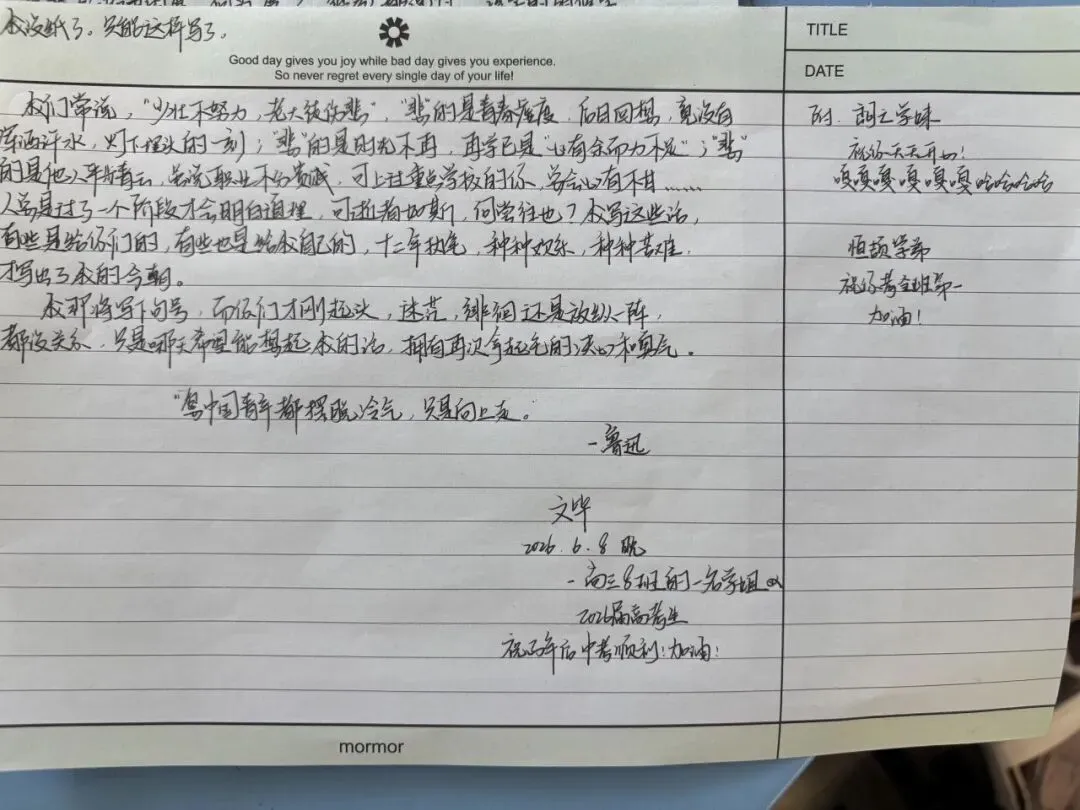 本没纸了。只能这样写了。
Good day gives you joy while bad day gives you experience.
So never regret every single day of your life!
本们常说，“少壮不努力，老大徒伤悲”，“悲”的是青春虚度，后日回想，竟没有
挥洒汗水，灯下埋头的一刻；“悲”的是时光不再，再学已是“心有余而力不足”；“悲”
的是他人平步青云，虽说职业不分贵贱，可上过重点学校的你，总会心有不甘……
人总是过了一个阶段才会明白道理，可逝者如斯，何尝往也？本写这些话，
有些是给你们的，有些也是给本自己的，十二年执笔，种种欢乐，种种苦难，
才写出了本的今朝。
本即将写下句号，而你们才刚起头，迷茫，徘徊还是放纵一阵，
都没关系，只是哪天希望能想起本的话，拥有再次拿起笔的决心和勇气。
“愿中国青年都摆脱冷气，只是向上走。”
-鲁迅
文毕
2026.6.8 晚
-高三8班的一名学姐
2026届高考生
祝你年后中考顺利！加油！
TITLE
DATE
附：
学妹
祝你天天开心！
嘎嘎嘎嘎嘎嘎哈哈哈哈
学弟
祝你考全班第一
加油！
mormor